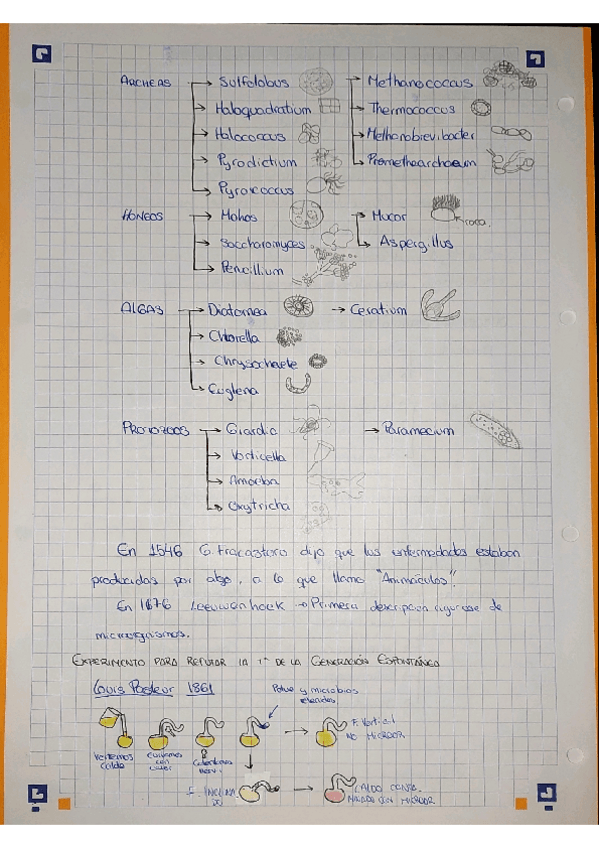 ARCHEAS → Sulfolobus → Methanococcus
→ Haloquadratium → Thermococcus
→ Halococcus → Methanobrevibacter
→ Pyrodictium → Promethoarchaeum
→ Pyrococcus
HONGOS → Mohos → Mucor
→ Saccharomyces → Aspergillus
→ Penicillium
ALGAS → Diatomea → Ceratium
→ Chlorella
→ Chrysochaete
→ Euglena
PROTOZOOS → Giardia → Paramecium
→ Vorticella
→ Amoeba
→ Oxytricha
En 1546 G. Fracastoro dijo que las enfermedades estaban
producidas por algo, a lo que llamo "Animáculos".
En 1676 Leeuwenhoek → Primera descripcion rigurosa de
microorganismos.
EXPERIMENTO PARA REFUTAR LA Tª DE LA GENERACIÓN ESPONTÁNEA
Louis Pasteur 1861
Polvo y microbios
retenidos
Vertemos
caldo
Curvamos
con
Calentamos
→ F. Vertical
NO MICROOR.
F. INCLINA
DO → CALDO CONTA
MINADO CON MICROOR